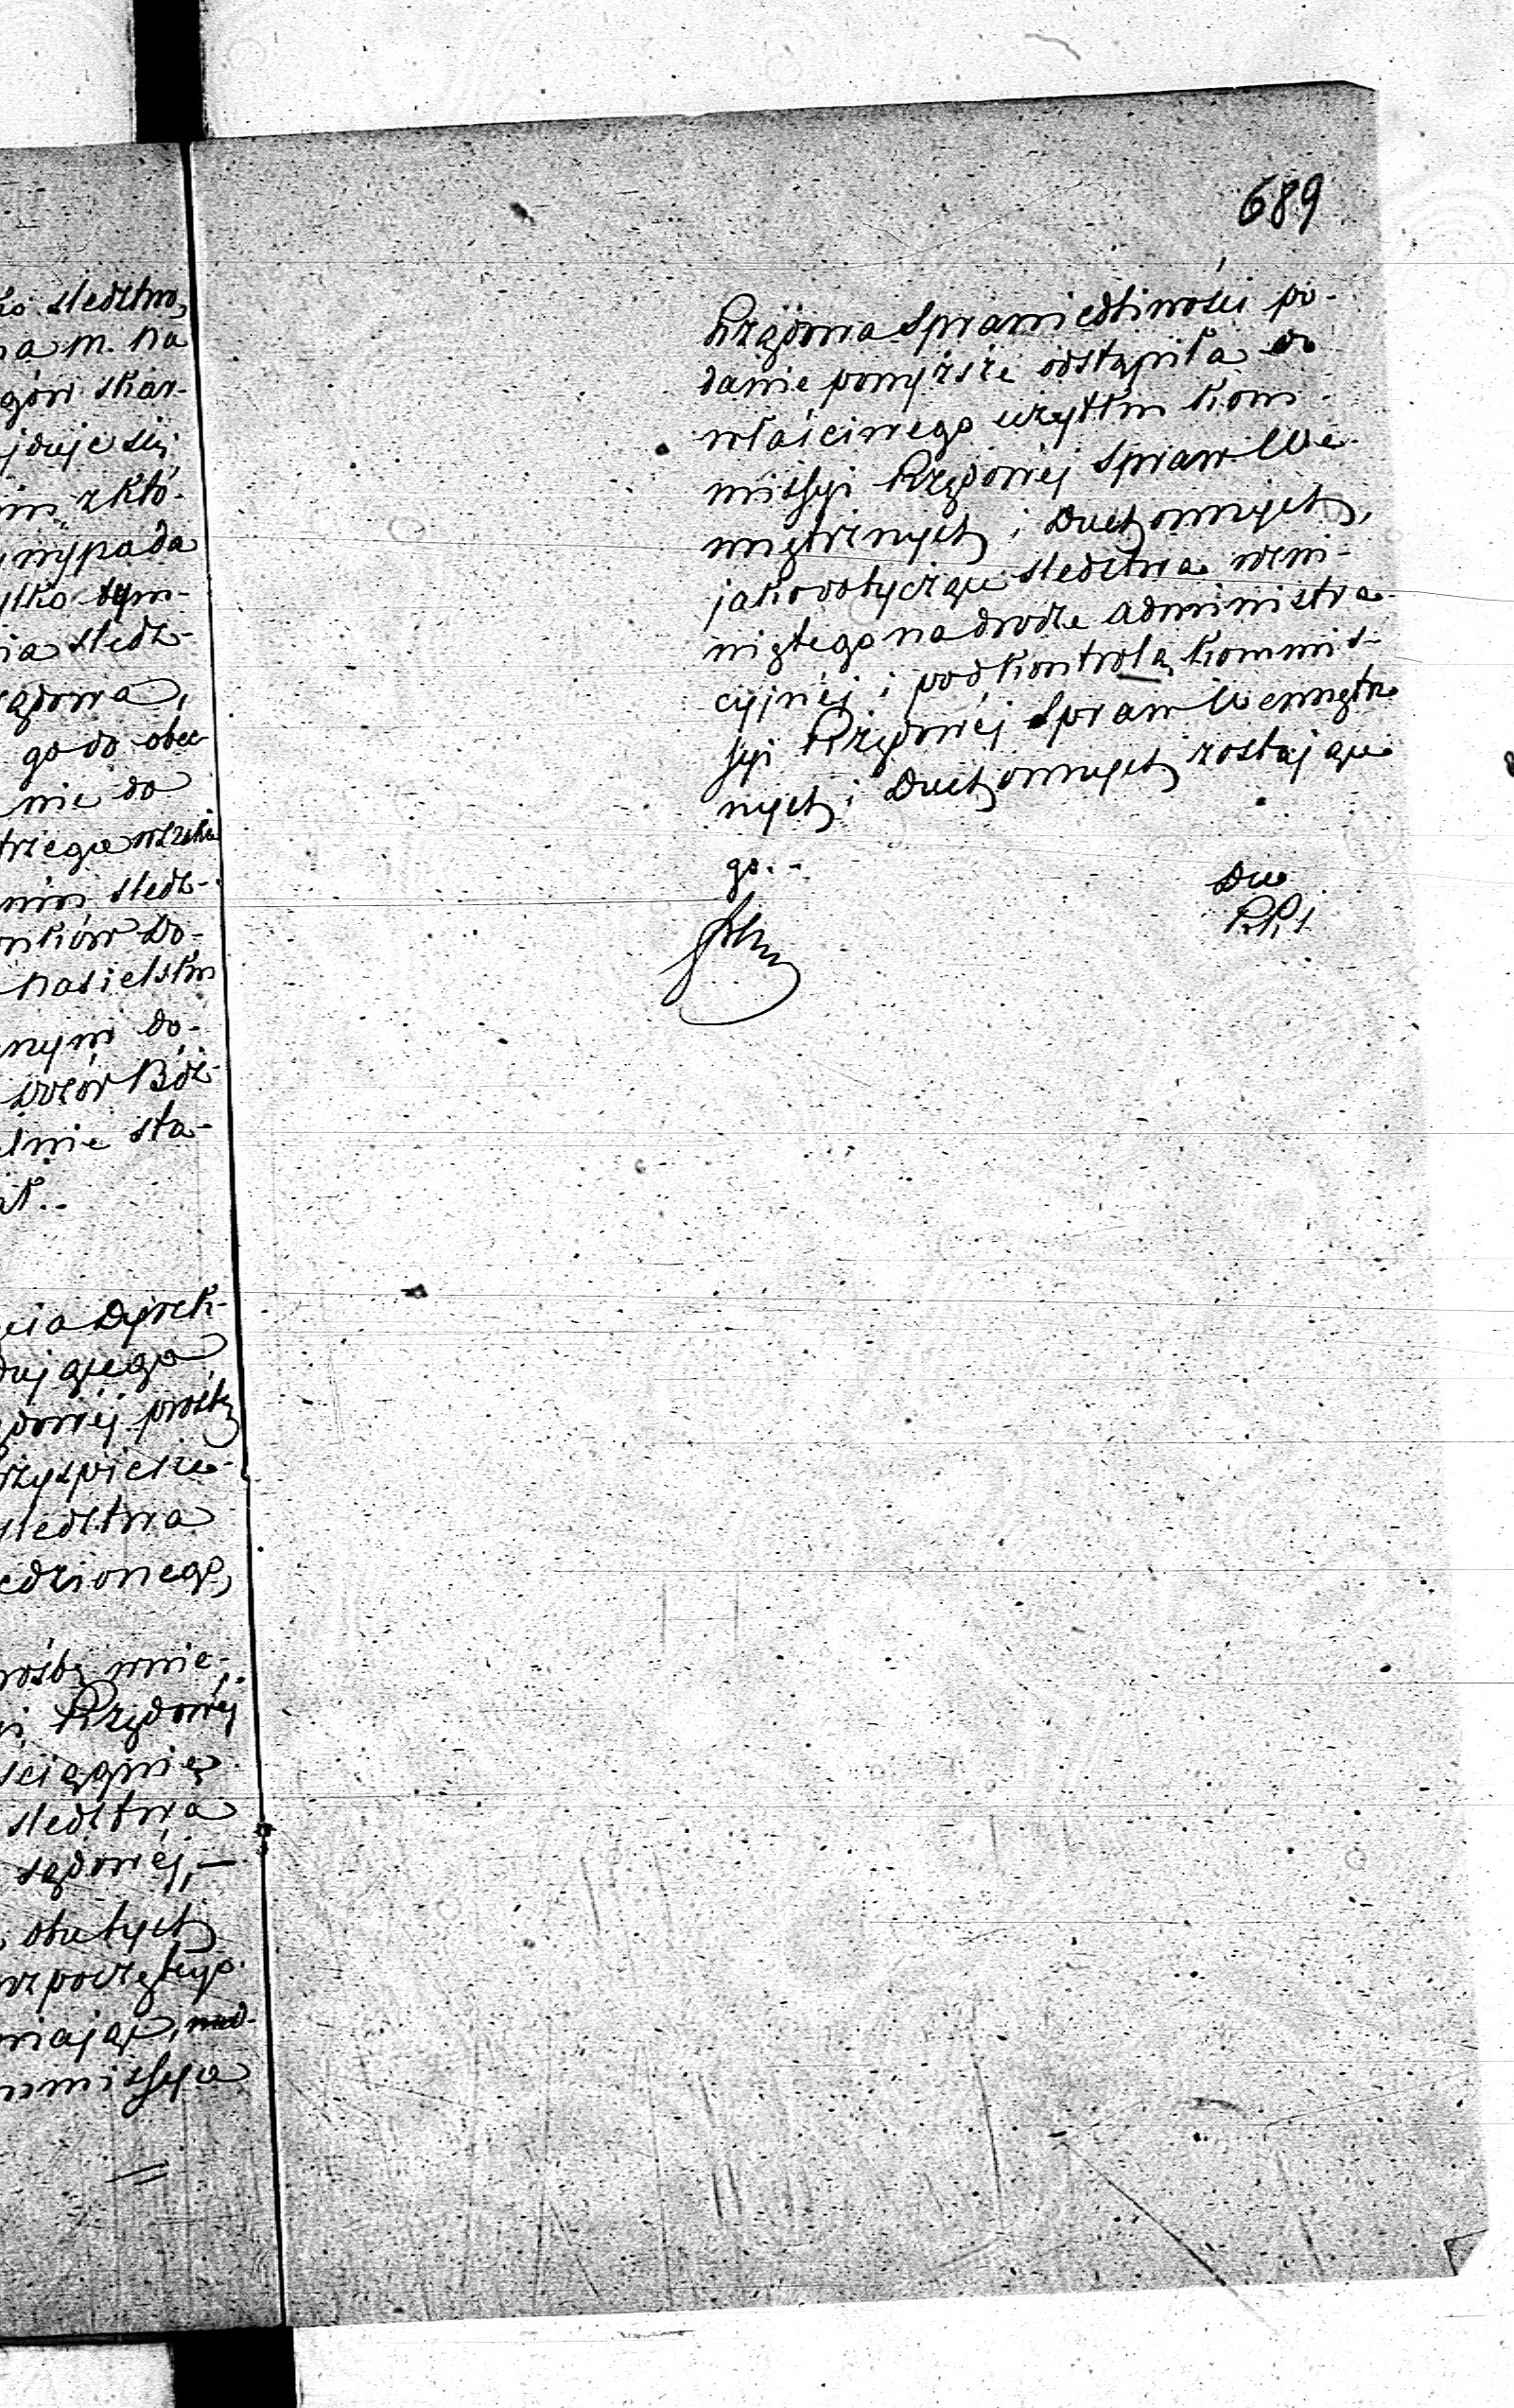 ko sledztwo,
na m. Na
gów skar-
jduje się
im, z któ-
wypada
ylko tym-
ia sledz-
ządowa,
go do obec
nie do
trzegu wszelk
nim sledz-
onków Do-
Nasielsku
nym do-
Dozór Boż-
elnie sta-
at..
cia Dyrek-
dującego
ądowéj prośbę
rzyspiesze-
sledztwa
edzionego,
rośbę wnie-
i Rządowéj
ściągnię
sledztwa
sądowéj, —
obu tych
rozpoczętego
niając,
mmissya
689
Rządowa Sprawiedliwości po-
danie powyższe odstąpiła do
właściwego użytku Kom-
missyi Rządowéj Spraw We-
wnętrznych i Duchownych,
jako dotyczące sledztwa wzni-
niętego na drodze administra-
cyjnéj i pod kontrolą Kommis-
syi Rządowéj Spraw Wewnętrz
nych i Duchownych zostające
go.-